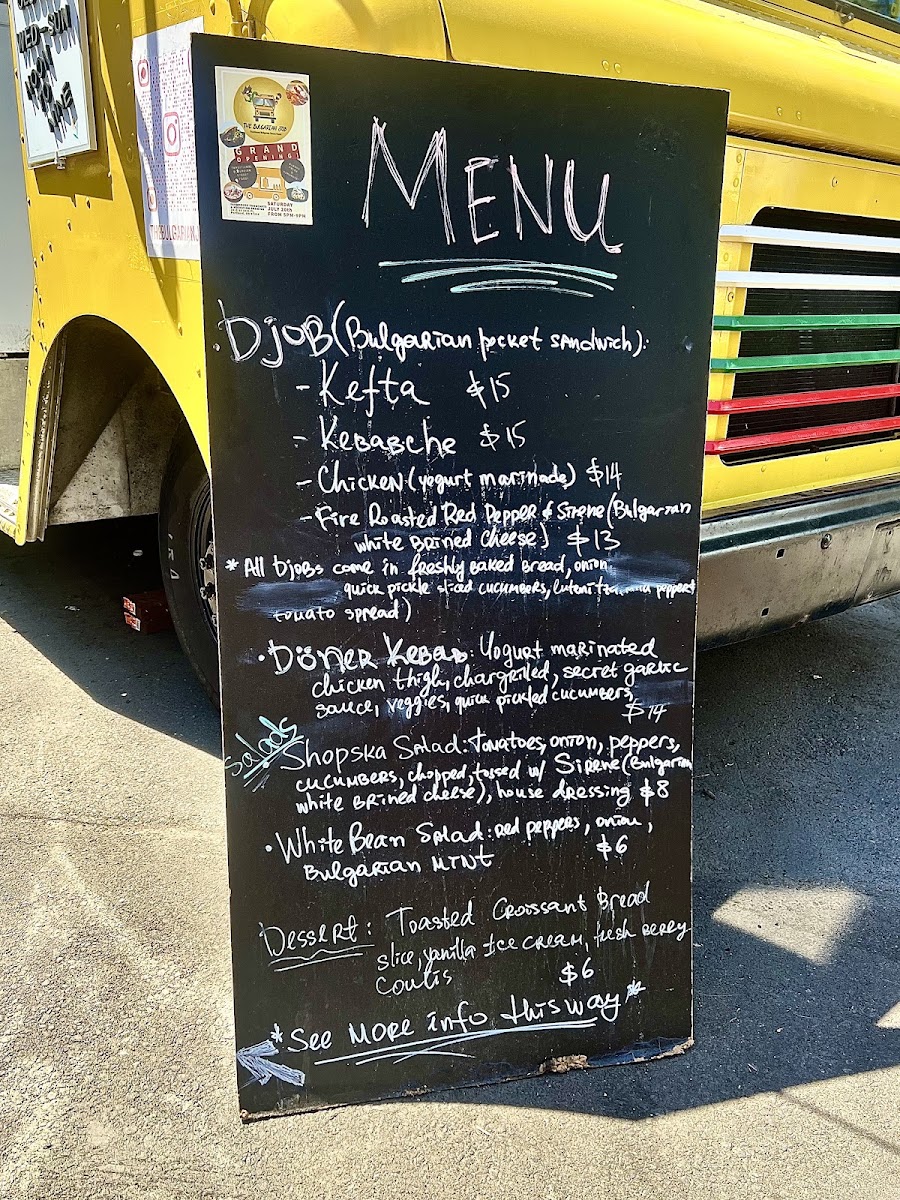 WED-SUN
THE BULGARIAN JOB
GRAND
OPENING!
SATURDAY
JULY 20th
FROM 5PM-9PM
MENU
DJOB (Bulgarian pocket sandwich):
- Kefta $15
- Kebabche $15
- Chicken (yogurt marinade) $14
- Fire Roasted Red Pepper & Sirene (Bulgarian
white brined cheese) $13
* All Djobs come in freshly baked bread, onion,
quick pickle sliced cucumbers, lutenitza
tomato spread)
• Döner Kebab: Yogurt marinated
chicken thigh, chargrilled, secret garlic
sauce, veggies, quick pickled cucumbers,
$14
Salads
Shopska Salad: Tomatoes, onion, peppers,
cucumbers, chopped, tossed w/ Sirene (Bulgarian
white brined cheese), house dressing $8
• White Bean Salad: red peppers, onion,
Bulgarian mint $6
Dessert: Toasted Croissant Bread
slice, vanilla Ice cream, fresh berry
coulis $6
* See more info this way *